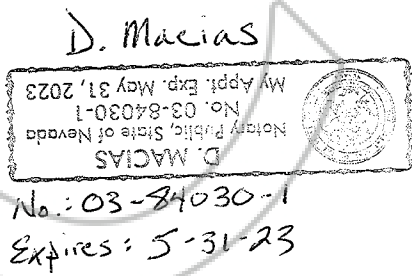 D. Macias
D. MACIAS
Notary Public, State of Nevada
No. 03-84030-1
My Appt. Exp. May 31, 2023
No.: 03-84030-1
Expires: 5-31-23